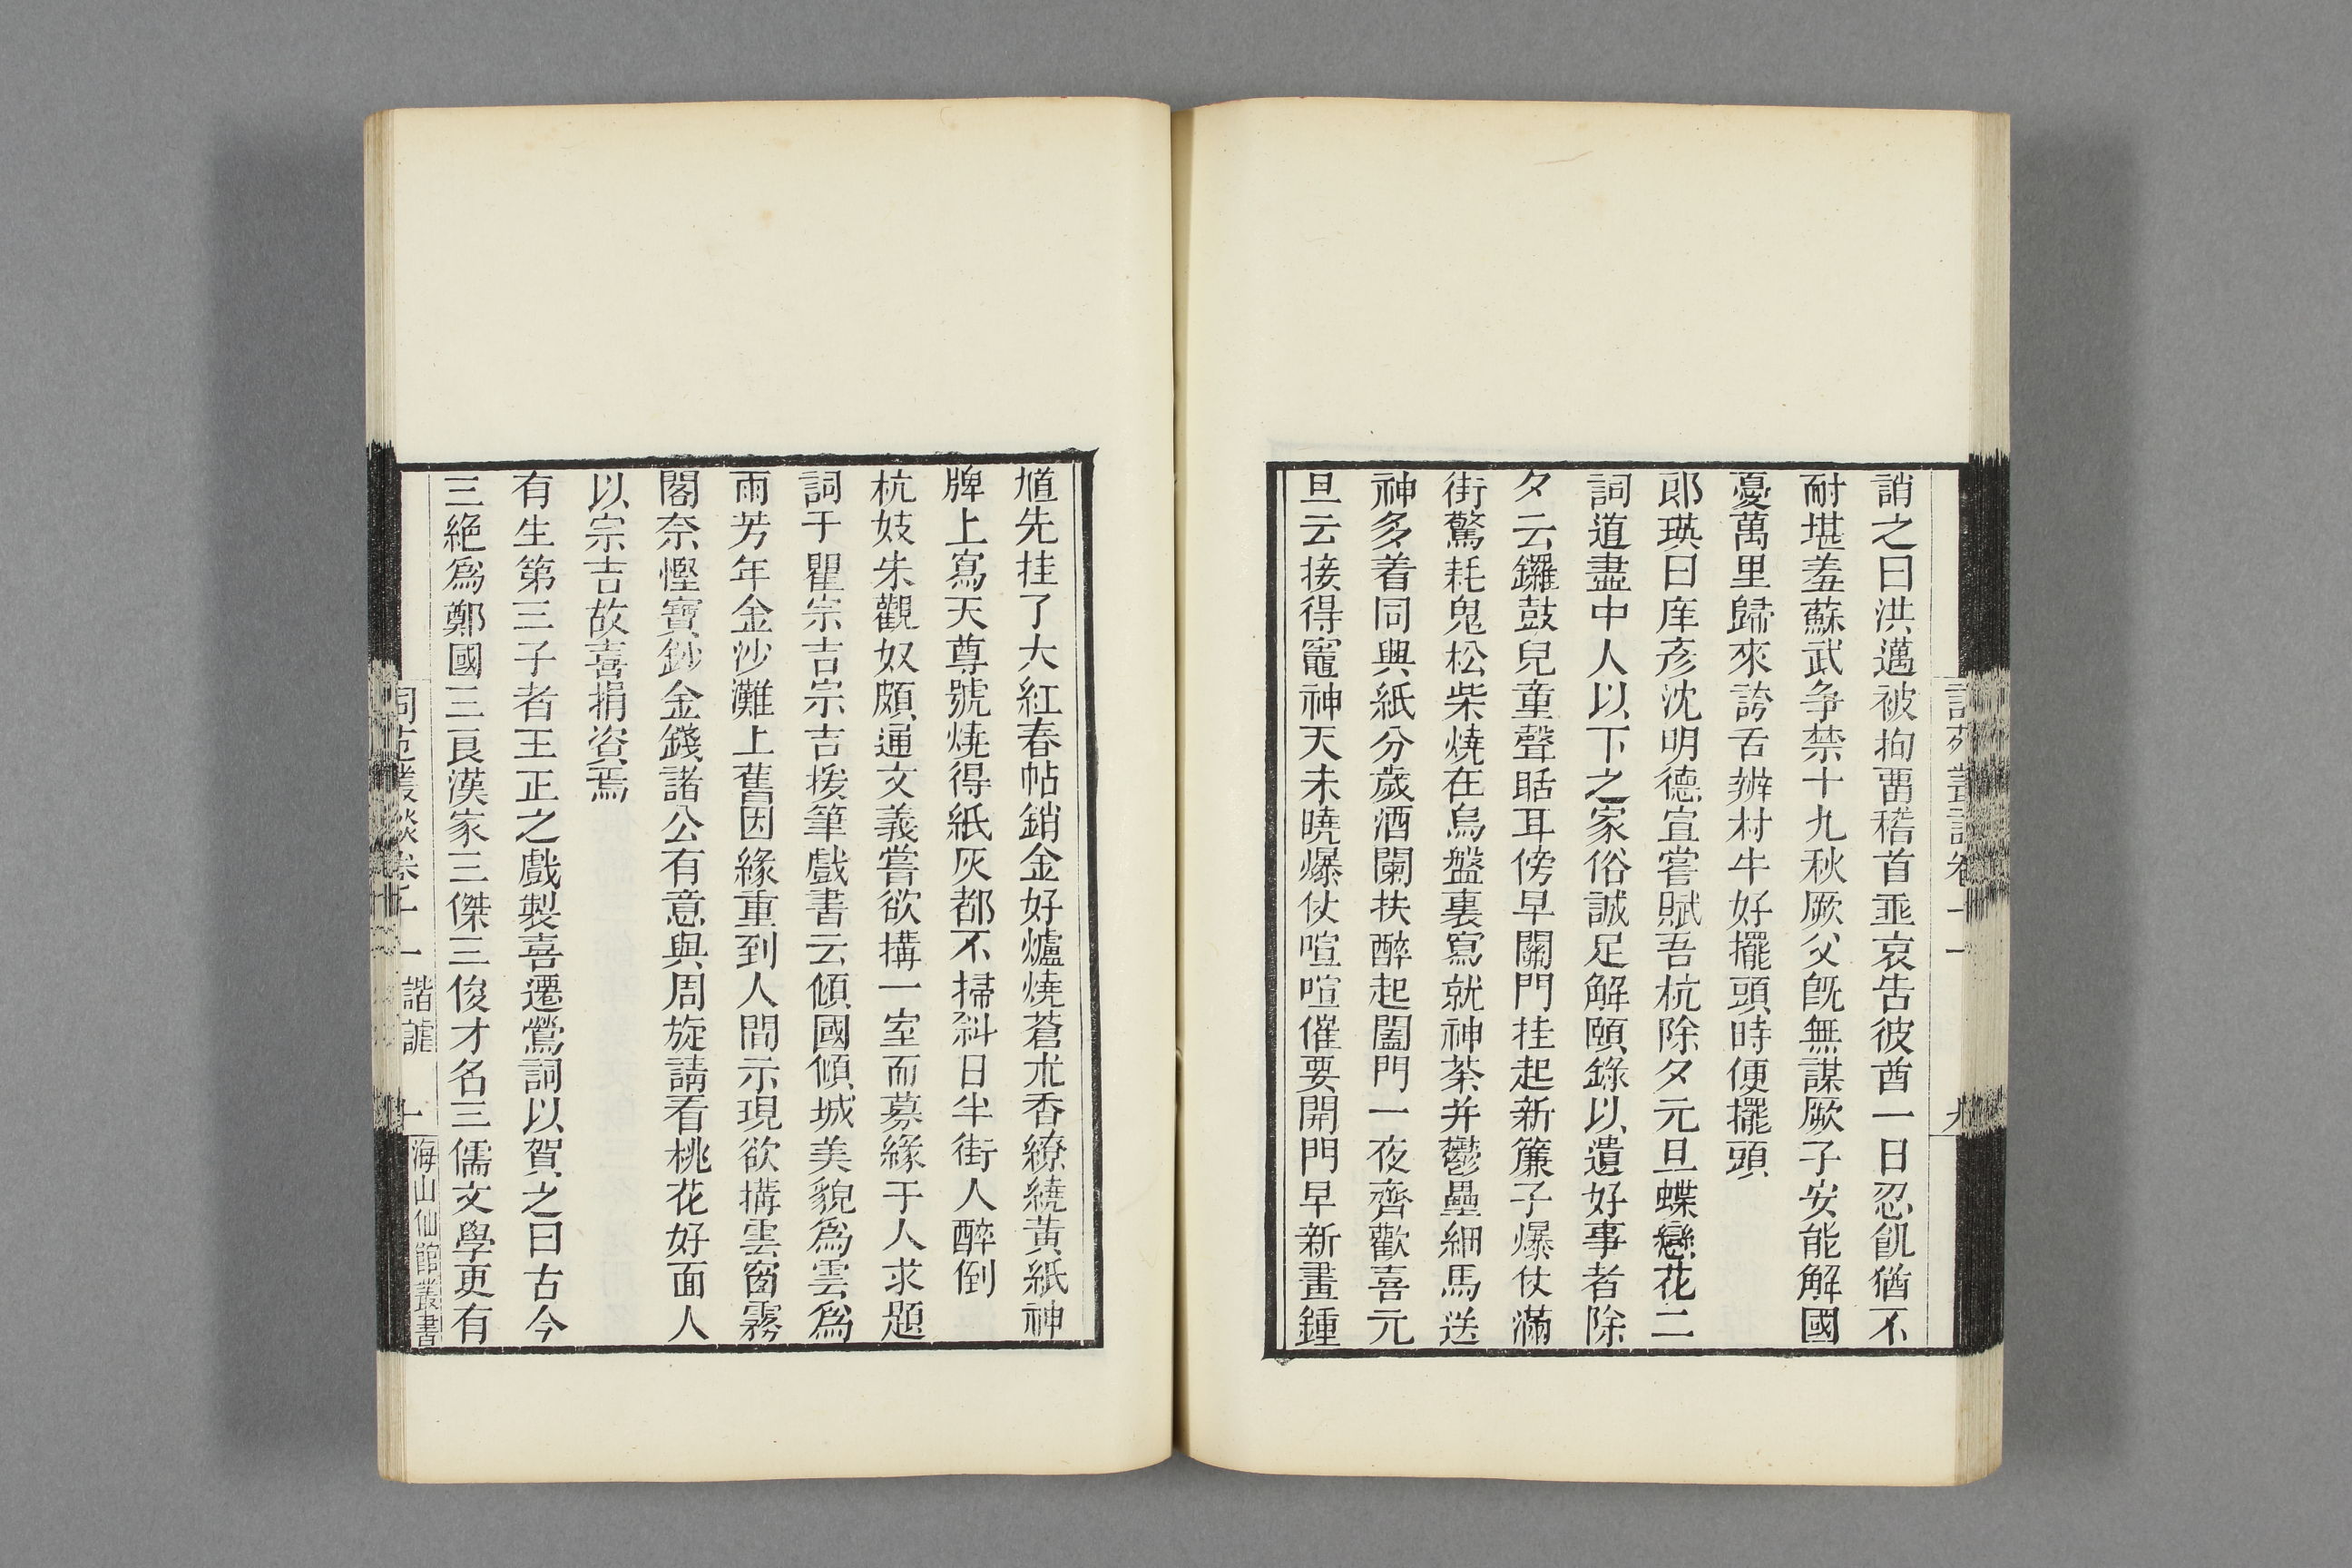 誚之曰洪邁被拘畱稽首垂哀告彼酋一日忍飢猶不
耐堪羞蘇武争禁十九秋厥父旣無謀厥子安能解國
憂萬里歸來誇舌辨村牛好擺頭時便擺頭
郎瑛曰庠彥沈明德宣嘗賦吾杭除夕元旦蝶戀花二
詞道盡中人以下之家俗誠足解頤錄以遺好事者除
夕云鑼鼓兒童聲聒耳傍早關門挂起新簾子爆仗滿
街驚耗鬼松柴燒在烏盤裏寫就神荼并鬱壘細馬送
神多着同興紙分歲酒闌扶醉起闔門一夜齊歡喜元
旦云接得竈神天未曉爆仗喧喧催要開門早新畫鍾
馗先挂了大紅春帖銷金好爐燒蒼朮香繚繞黃紙神
牌上寫天尊號燒得紙灰都不掃斜日半街人醉倒
杭妓朱觀奴頗通文義嘗欲搆一室而募緣于人求題
詞于瞿宗吉宗吉援筆戲書云傾國傾城美貌爲雲爲
雨芳年金沙灘上舊因緣重到人間示現欲搆雲窗霧
閣奈慳寶鈔金錢諸公有意與周旋請看桃花好面人
以宗吉故喜捐資焉
有生第三子者王正之戲製喜遷鶯詞以賀之曰古今
三絕爲鄭國三良漢家三傑三俊才名三儒文學更有
詞苑叢談卷十一 諧謔 十 海山仙館叢書